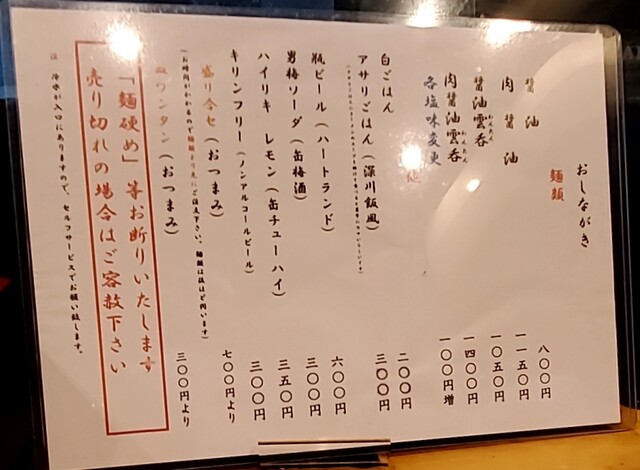 おしながき
麺類
醤油 八〇〇円
肉醤油 一一五〇円
醤油雲呑 一〇五〇円
肉醤油雲呑 一四〇〇円
各塩味変更 一〇〇円増
他
白ごはん 二〇〇円
アサリごはん(深川飯風) 三〇〇円
瓶ビール(ハートランド) 六〇〇円
男梅ソーダ(缶梅酒) 三〇〇円
ハイリキ レモン(缶チューハイ) 三五〇円
キリンフリー(ノンアルコールビール) 三〇〇円
盛り合せ(おつまみ) 七〇〇円より
(お時間がかかるので麺類より先にご注文下さい。麺類は後ほど伺います)
ワンタン(おつまみ) 三〇〇円より
「麺硬め」等お断りいたします
売り切れの場合はご容赦下さい
冷水が入口にありますので、セルフサービスでお願い致します。